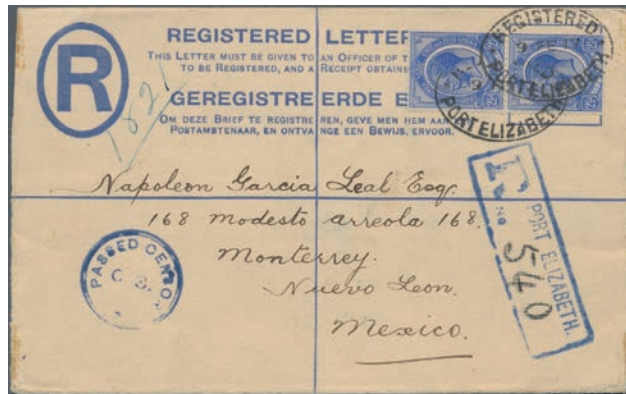 REGISTERED LETTER
THIS LETTER MUST BE GIVEN TO AN OFFICER OF T
TO BE REGISTERED, AND A RECEIPT OBTAINE
GEREGISTREERDE B
OM DEZE BRIEF TE REGISTREREN, GEVE MEN HEM AAN
POSTAMBTENAAR, EN ONTVANGE EEN BEWIJS, ERVOOR.
R
1821
REGISTERED
PORT ELIZABETH
PORT ELIZABETH
Napoleon Garcia Leal Esq.
168 modesto arreola 168.
Monterrey.
Nuevo Leon.
Mexico.
PASSED CENSOR
C. 3.
R
PORT ELIZABETH.
No
540